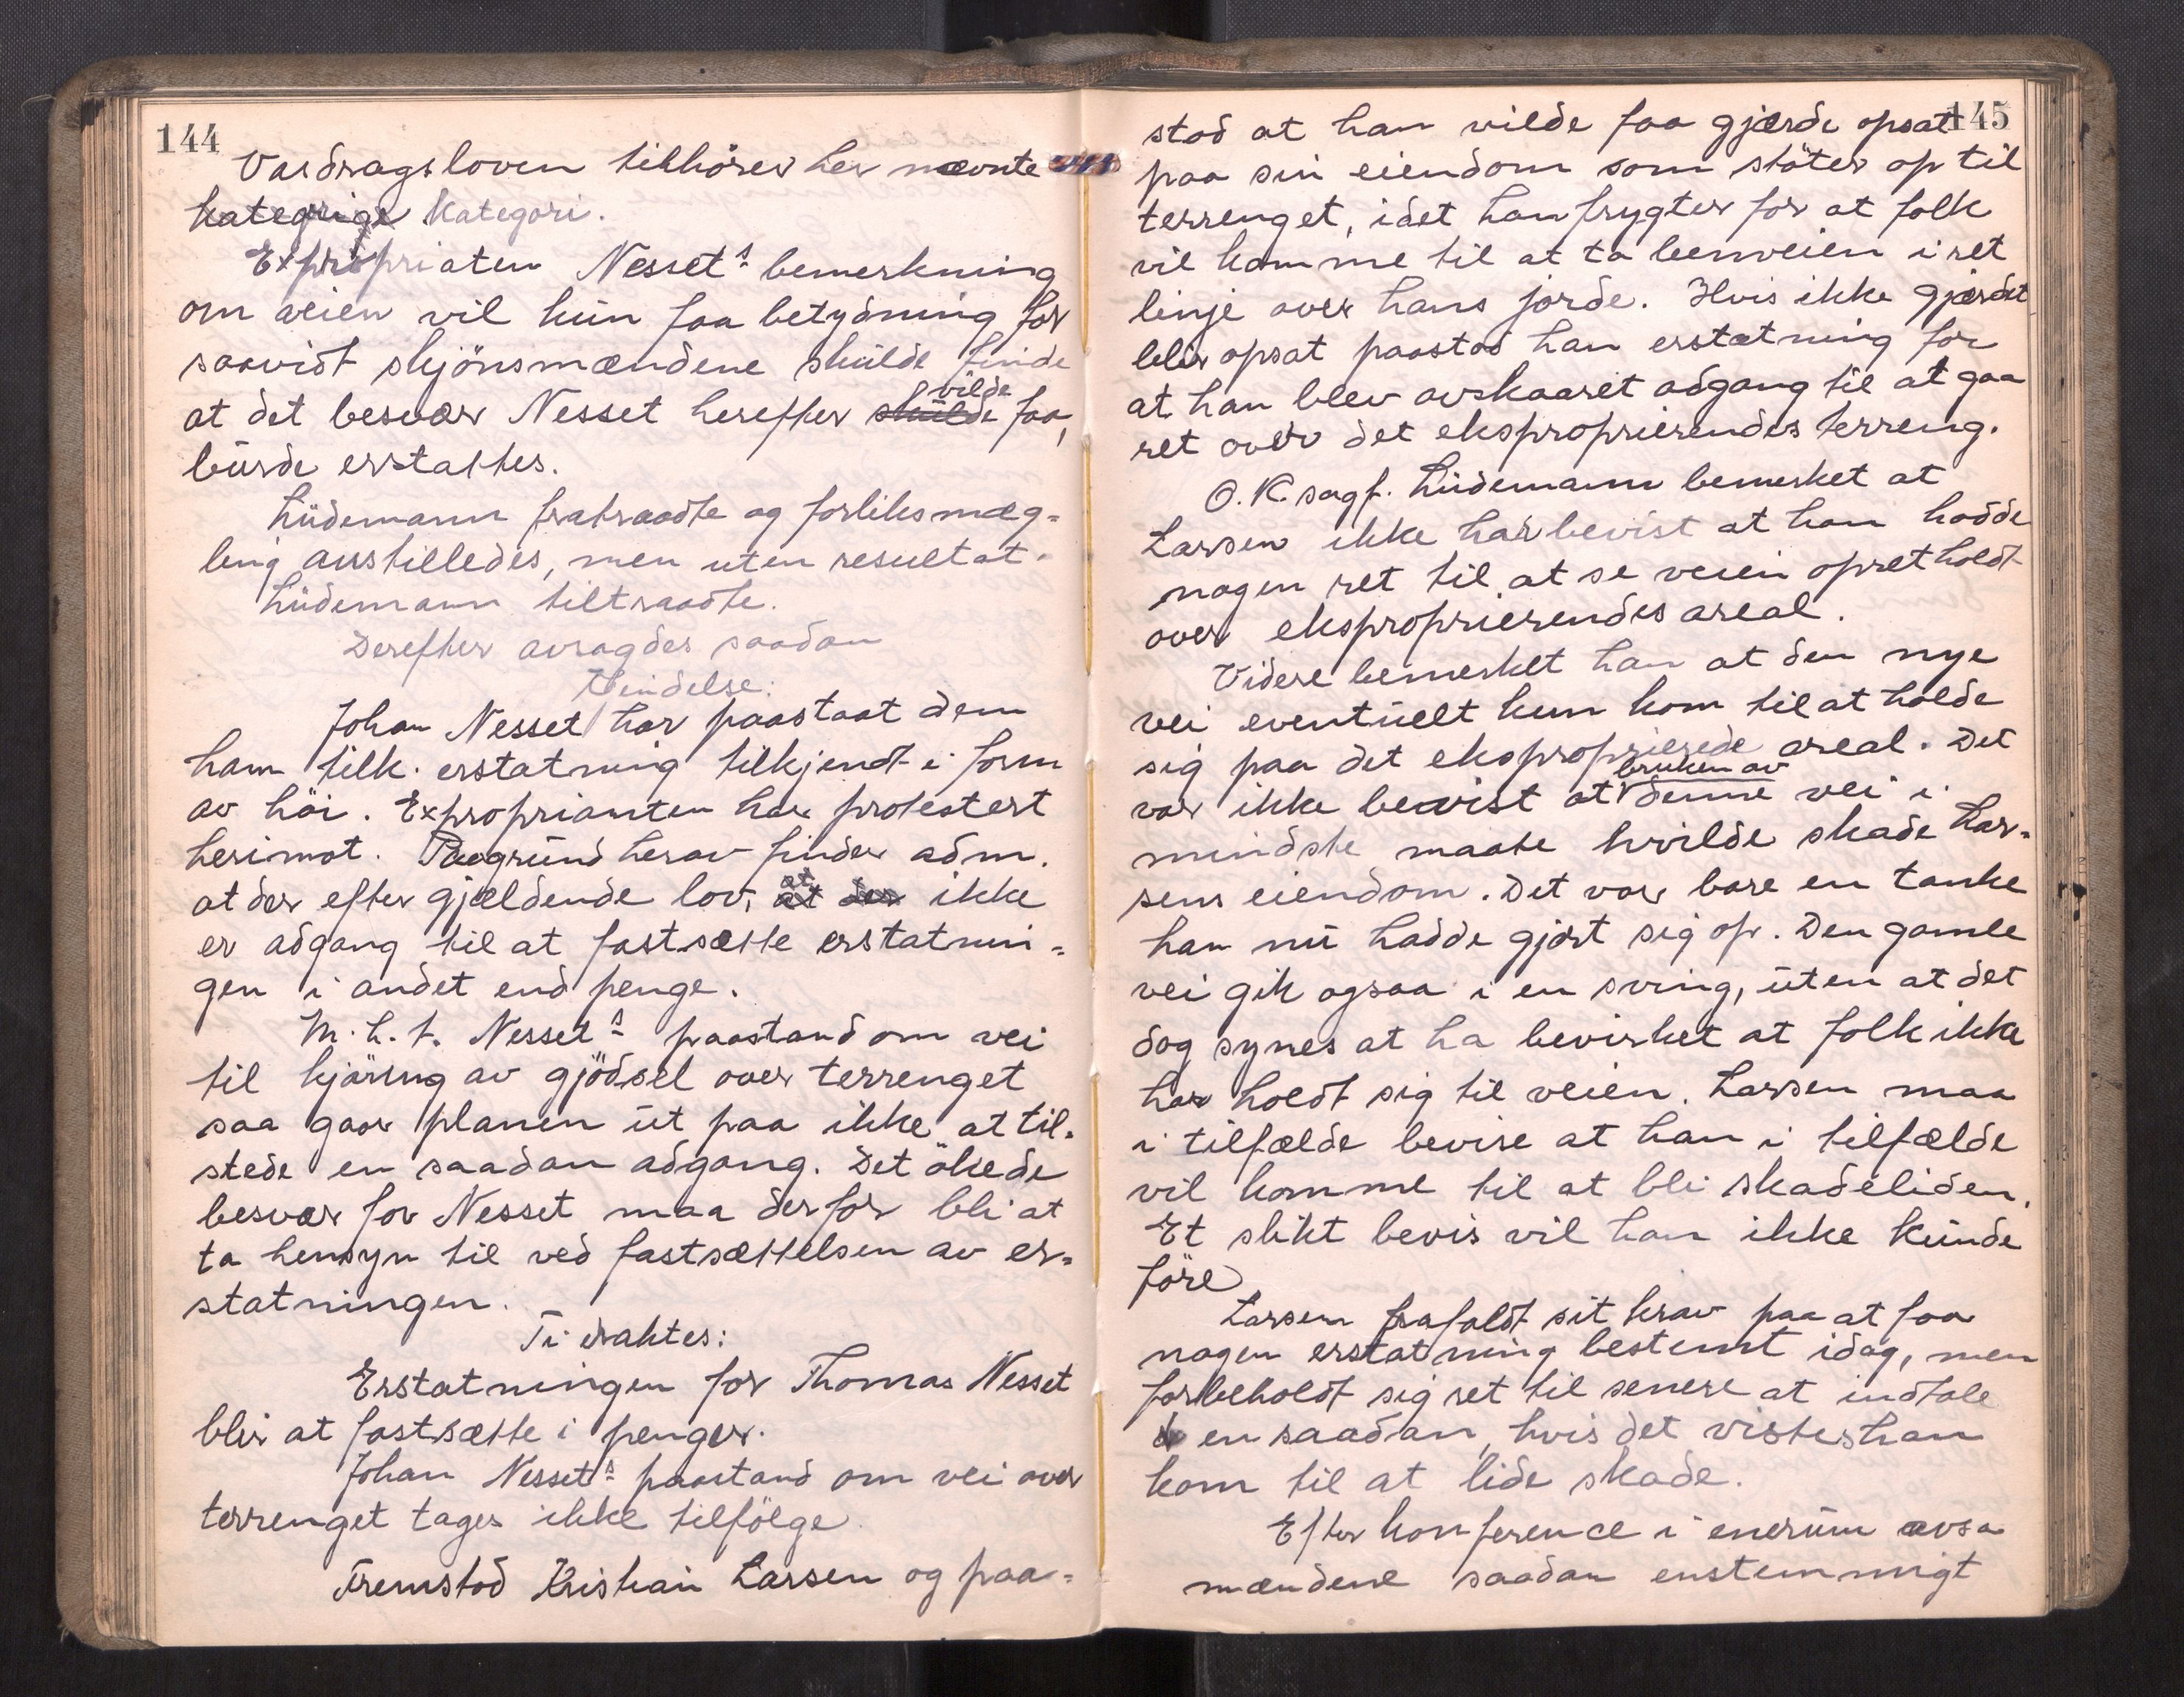 144
Vasdragsloven tilhører her nævnte
kategrige kategori.
Expropriaten Nesset's bemerkning
om veien vil kun faa betydning for
saavidt skjönsmændene skulde finde
at det besvær Nesset herefter skulde vilde faa,
burde erstattes.
Lüdemann fratraadte og forliksmæg-
ling anstilledes, men uten resultat.
Lüdemann tiltraadte.
Derefter avsagdes saadan
Kjendelse:
Johan Nesset har paastaat den
ham tilk. erstatning tilkjendt i form
av höi. Exproprianten har protestert
herimot. Paagrund herav finder adm.
at der efter gjældende lov, at at der ikke
er adgang til at fastsætte erstatnin-
gen i andet end penge.
M. h. t. Nesset's paastand om vei
til kjöring av gjödsel over terrenget
saa gaar planen ut paa ikke at til-
stede en saadan adgang. Det ökede
besvær for Nesset maa derfor bli at
ta hensyn til ved fastsættelsen av er-
statningen.
Ti eraktes:
Erstatningen for Thomas Nesset
blir at fastsætte i penger.
Johan Nesset's paastand om vei over
terrenget tages ikke tilfölge.
Fremstod Kristian Larsen og paa-
145
stod at han vilde faa gjærde opsat
paa sin eiendom som stöter op til
terrenget, idet han frygter for at folk
vil komme til at ta benveien i ret
linje over hans jorde. Hvis ikke gjærdet
blir opsat paastod han erstatning for
at han blev avskaaret adgang til at gaa
ret over det eksproprierendes terreng.
O. R. sagf. Lüdemann bemerket at
Larsen ikke har bevist at han hadde
nogen ret til at se veien opretholdt
over eksproprierendes areal.
Videre bemerket han at den nye
vei eventuelt kun kom til at holde
sig paa det eksproprierede areal. Det
var ikke bevist at bruken av denne vei i
mindste maate hvilde skade Lar-
sens eiendom. Det var bare en tanke
han nu hadde gjort sig op. Den gamle
vei gik ogsaa i en sving, uten at det
dog synes at ha bevirket at folk ikke
har holdt sig til veien. Larsen maa
i tilfælde bevise at han i tilfælde
vil komme til at bli skadeliden.
Et slikt bevis vil han ikke kunde
före
Larsen frafaldt sit krav paa at faa
nogen erstatning bestemt idag, men
forbeholdt sig ret til senere at indtale
en saadan, hvis det vistes han
kom til at lide skade.
Efter konference i enerum avsa
mændene saadan enstemmigt